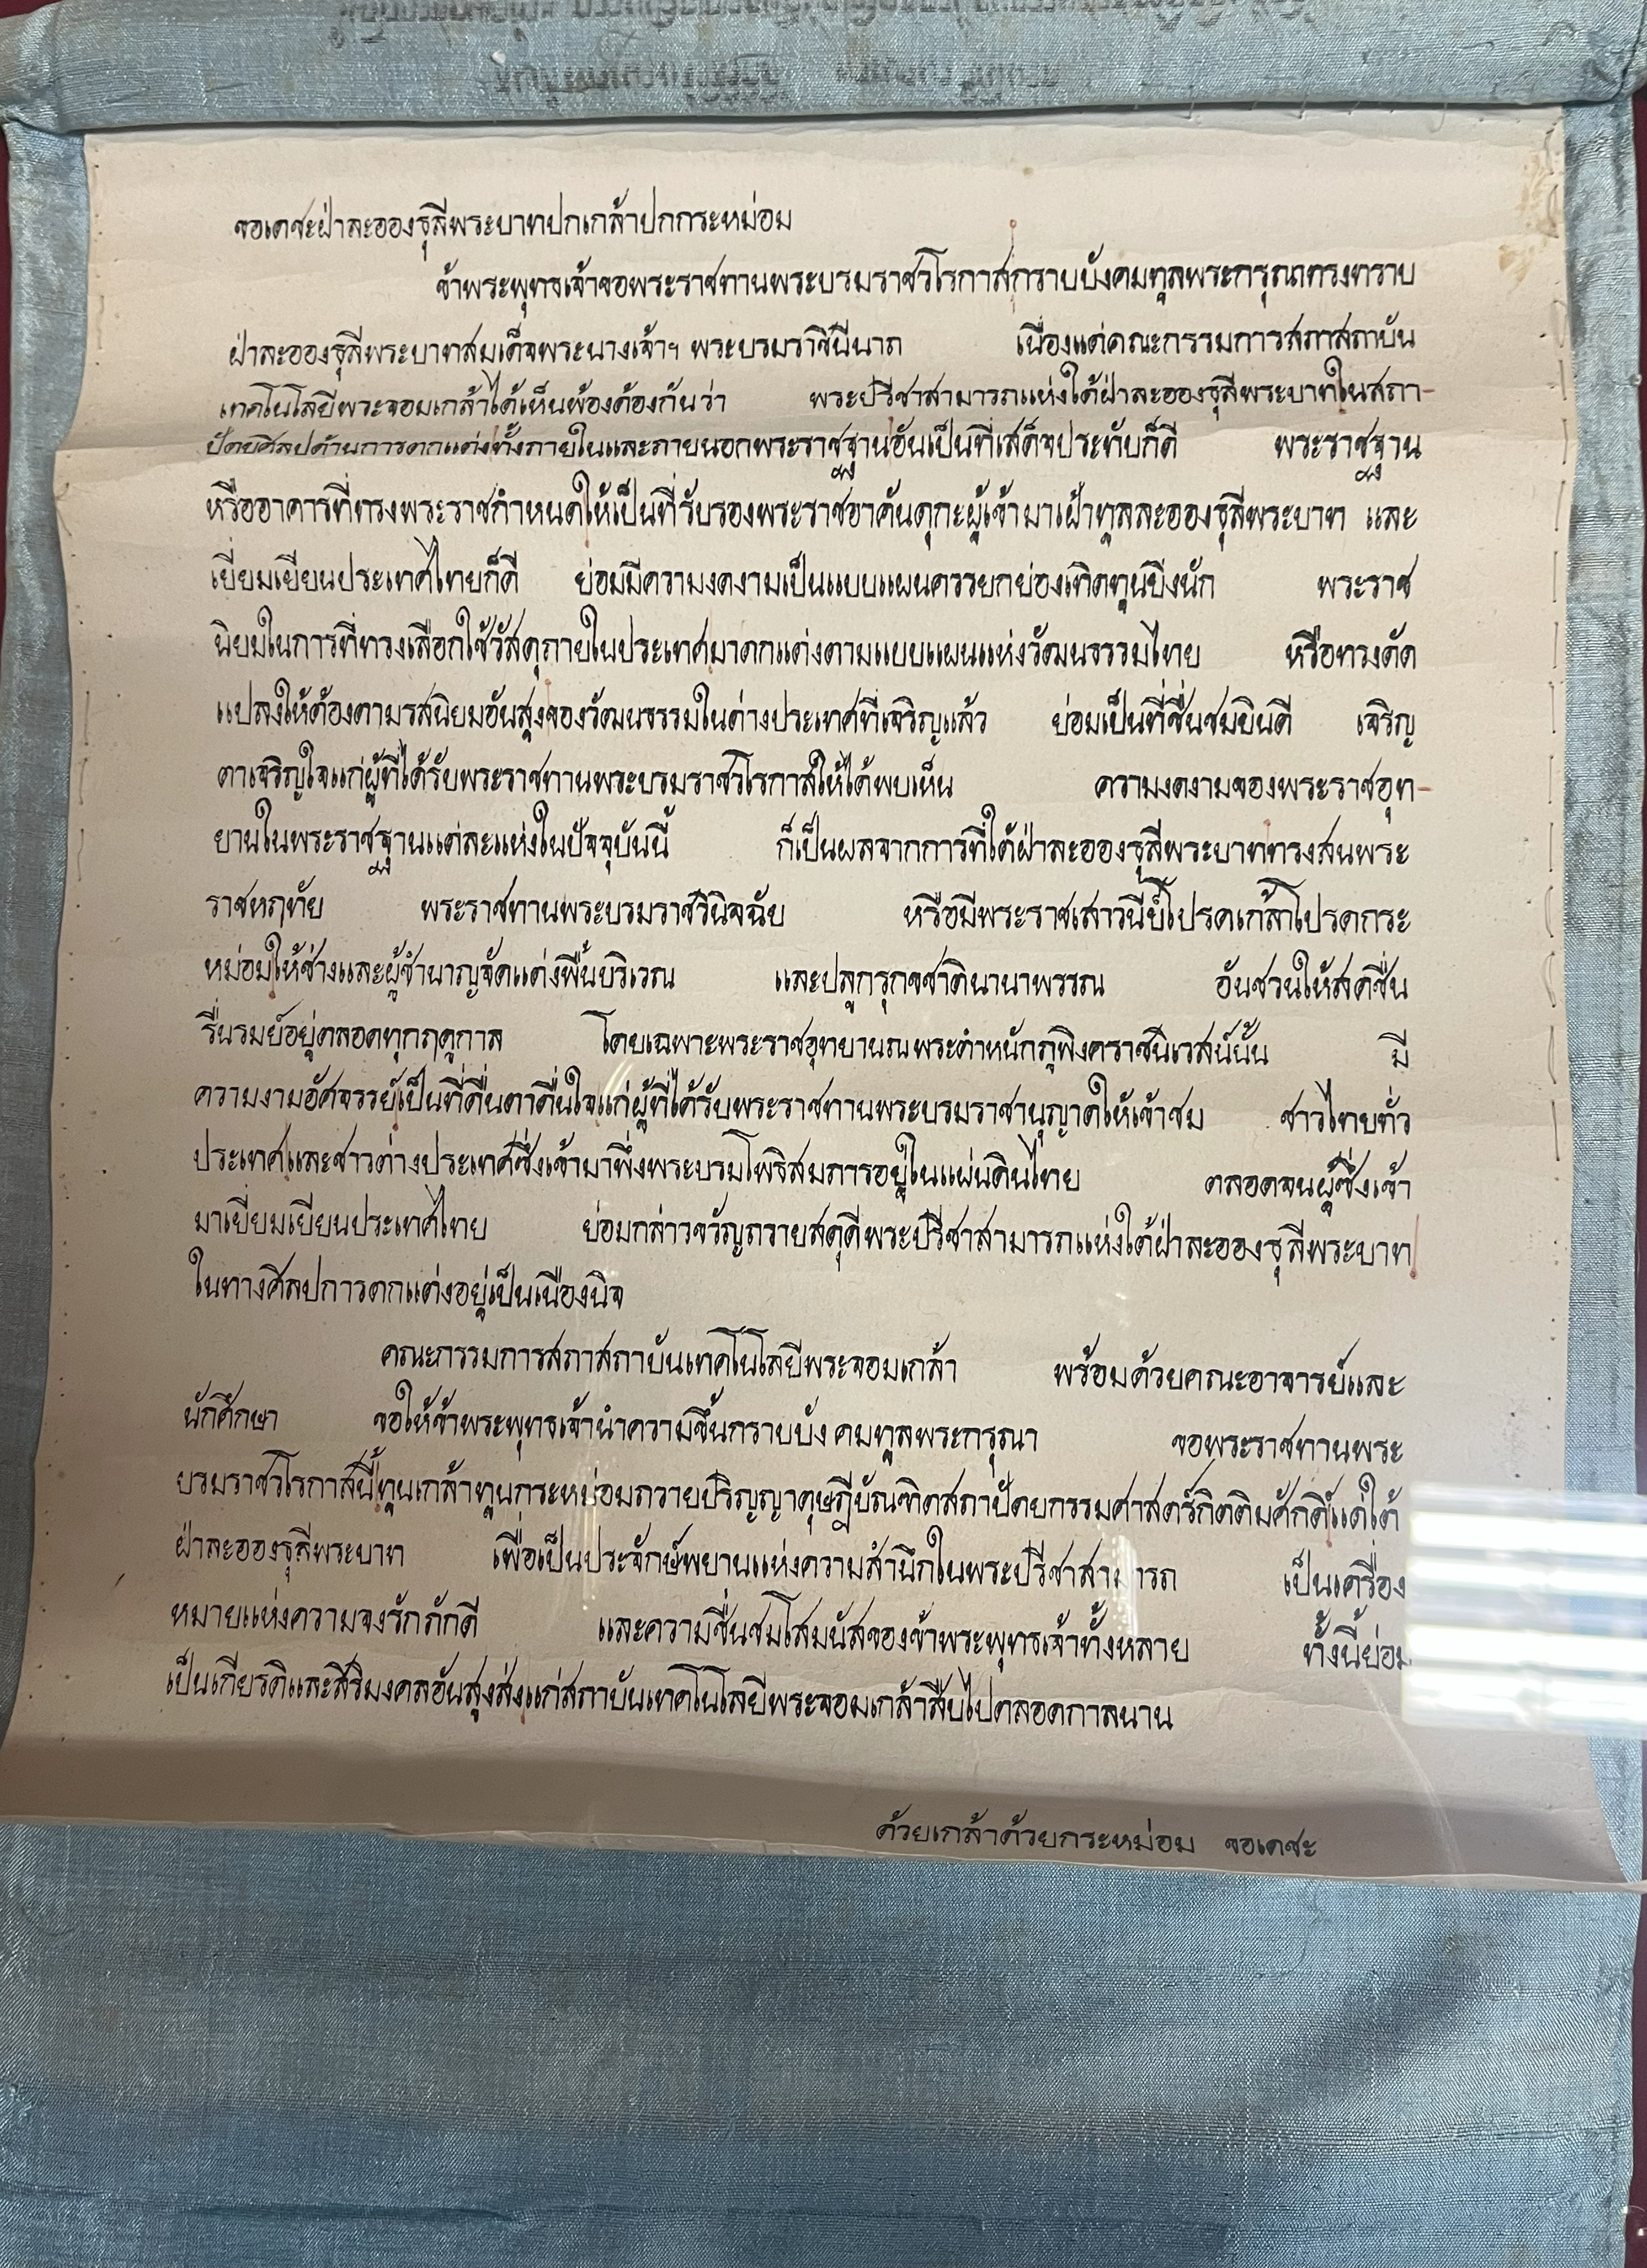 ขอเดชะฝ่าละอองธุลีพระบาทปกเกล้าปกกระหม่อม
ข้าพระพุทธเจ้าขอพระราชทานพระบรมราชวโรกาสกราบบังคมทูลพระกรุณาทรงทราบ
ฝ่าละอองธุลีพระบาทสมเด็จพระนางเจ้าฯ พระบรมราชินีนาถ เนื่องแต่คณะกรรมการสภาสถาบัน
เทคโนโลยีพระจอมเกล้าได้เห็นพ้องต้องกันว่า พระปรีชาสามารถแห่งใต้ฝ่าละอองธุลีพระบาทในสถา-
ปัตยศิลปด้านการตกแต่งทั้งภายในและภายนอกพระราชฐานอันเป็นที่เสด็จประทับก็ดี พระราชฐาน
หรืออาคารที่ทรงพระราชกำหนดให้เป็นที่รับรองพระราชอาคันตุกะผู้เข้ามาเฝ้าทูลละอองธุลีพระบาท และ
เยี่ยมเยียนประเทศไทยก็ดี ย่อมมีความงดงามเป็นแบบแผนควรยกย่องเทิดทูนยิ่งนัก พระราช
นิยมในการที่ทรงเลือกใช้วัสดุภายในประเทศมาตกแต่งตามแบบแผนแห่งวัฒนธรรมไทย หรือทรงดัด
แปลงให้ต้องตามรสนิยมอันสูงของวัฒนธรรมในต่างประเทศที่เจริญแล้ว ย่อมเป็นที่ชื่นชมยินดี เจริญ
ตาเจริญใจแก่ผู้ที่ได้รับพระราชทานพระบรมราชวโรกาสให้ได้พบเห็น ความงดงามของพระราชอุท-
ยานในพระราชฐานแต่ละแห่งในปัจจุบันนี้ ก็เป็นผลจากการที่ใต้ฝ่าละอองธุลีพระบาททรงสนพระ
ราชหฤทัย พระราชทานพระบรมราชวินิจฉัย หรือมีพระราชเสาวนีย์โปรดเกล้าโปรดกระ
หม่อมให้ช่างและผู้ชำนาญจัดแต่งพื้นบริเวณ และปลูกรุกขชาตินานาพรรณ อันชวนให้สดชื่น
รื่นรมย์อยู่ตลอดทุกฤดูกาล โดยเฉพาะพระราชอุทยานณพระตำหนักภูพิงคราชนิเวสน์นั้น มี
ความงามอัศจรรย์เป็นที่ตื่นตาตื่นใจแก่ผู้ที่ได้รับพระราชทานพระบรมราชานุญาตให้เข้าชม ชาวไทยทั่ว
ประเทศและชาวต่างประเทศซึ่งเข้ามาพึ่งพระบรมโพธิสมภารอยู่ในแผ่นดินไทย ตลอดจนผู้ซึ่งเข้า
มาเยี่ยมเยียนประเทศไทย ย่อมกล่าวขวัญถวายสดุดีพระปรีชาสามารถแห่งใต้ฝ่าละอองธุลีพระบาท
ในทางศิลปการตกแต่งอยู่เป็นเนืองนิจ
คณะกรรมการสภาสถาบันเทคโนโลยีพระจอมเกล้า พร้อมด้วยคณะอาจารย์และ
นักศึกษา ขอให้ข้าพระพุทธเจ้านำความขึ้นกราบบังคมทูลพระกรุณา ขอพระราชทานพระ
บรมราชวโรกาสนี้ทูนเกล้าทูนกระหม่อมถวายปริญญาดุษฎีบัณฑิตสถาปัตยกรรมศาสตร์กิตติมศักดิ์แด่ใต้
ฝ่าละอองธุลีพระบาท เพื่อเป็นประจักษ์พยานแห่งความสำนึกในพระปรีชาสามารถ เป็นเครื่อง
หมายแห่งความจงรักภักดี และความชื่นชมโสมนัสของข้าพระพุทธเจ้าทั้งหลาย ทั้งนี้ย่อม
เป็นเกียรติและสิริมงคลอันสูงส่งแก่สถาบันเทคโนโลยีพระจอมเกล้าสืบไปตลอดกาลนาน
ด้วยเกล้าด้วยกระหม่อม ขอเดชะ